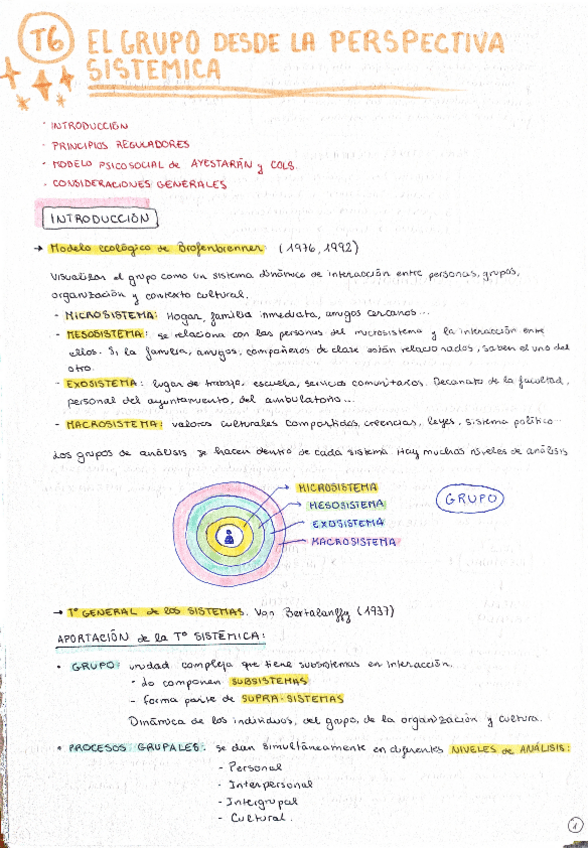 T6 EL GRUPO DESDE LA PERSPECTIVA
SISTEMICA
· INTRODUCCIÓN
· PRINCIPIOS REGULADORES
· MODELO PSICOSOCIAL de AYESTARÁN y COLS.
· CONSIDERACIONES GENERALES
INTRODUCCIÓN
→ Modelo ecológico de Brofenbrenner (1976, 1992)
Visualizan el grupo como un sistema dinámico de interacción entre personas, grupos,
organización y contexto cultural.
- MICROSISTEMA: Hogar, familia inmediata, amigos cercanos...
- MESOSISTEMA: se relaciona con las personas del microsistema y la interacción entre
ellos. Si la familia, amigos, compañeros de clase están relacionados, saben el uno del
otro.
- EXOSISTEMA: lugar de trabajo, escuela, servicios comunitarios. Decanato de la facultad,
personal del ayuntamiento, del ambulatorio...
- MACROSISTEMA: valores culturales compartidos, creencias, leyes, sistema político...
Los grupos de análisis se hacen dentro de cada sistema. Hay muchos niveles de análisis
MICROSISTEMA
MESOSISTEMA
EXOSISTEMA
MACROSISTEMA
GRUPO
→ Tª GENERAL de los SISTEMAS. Von Bertalanffy (1937)
APORTACIÓN de la Tª SISTÉMICA:
· GRUPO: unidad compleja que tiene subsistemas en interacción.
- Lo componen SUBSISTEMAS
- forma parte de SUPRA-SISTEMAS
Dinámica de los individuos, del grupo, de la organización y cultura.
· PROCESOS GRUPALES: se dan simultáneamente en diferentes NIVELES de ANÁLISIS:
- Personal
- Interpersonal
- Intergrupal
- Cultural.
1